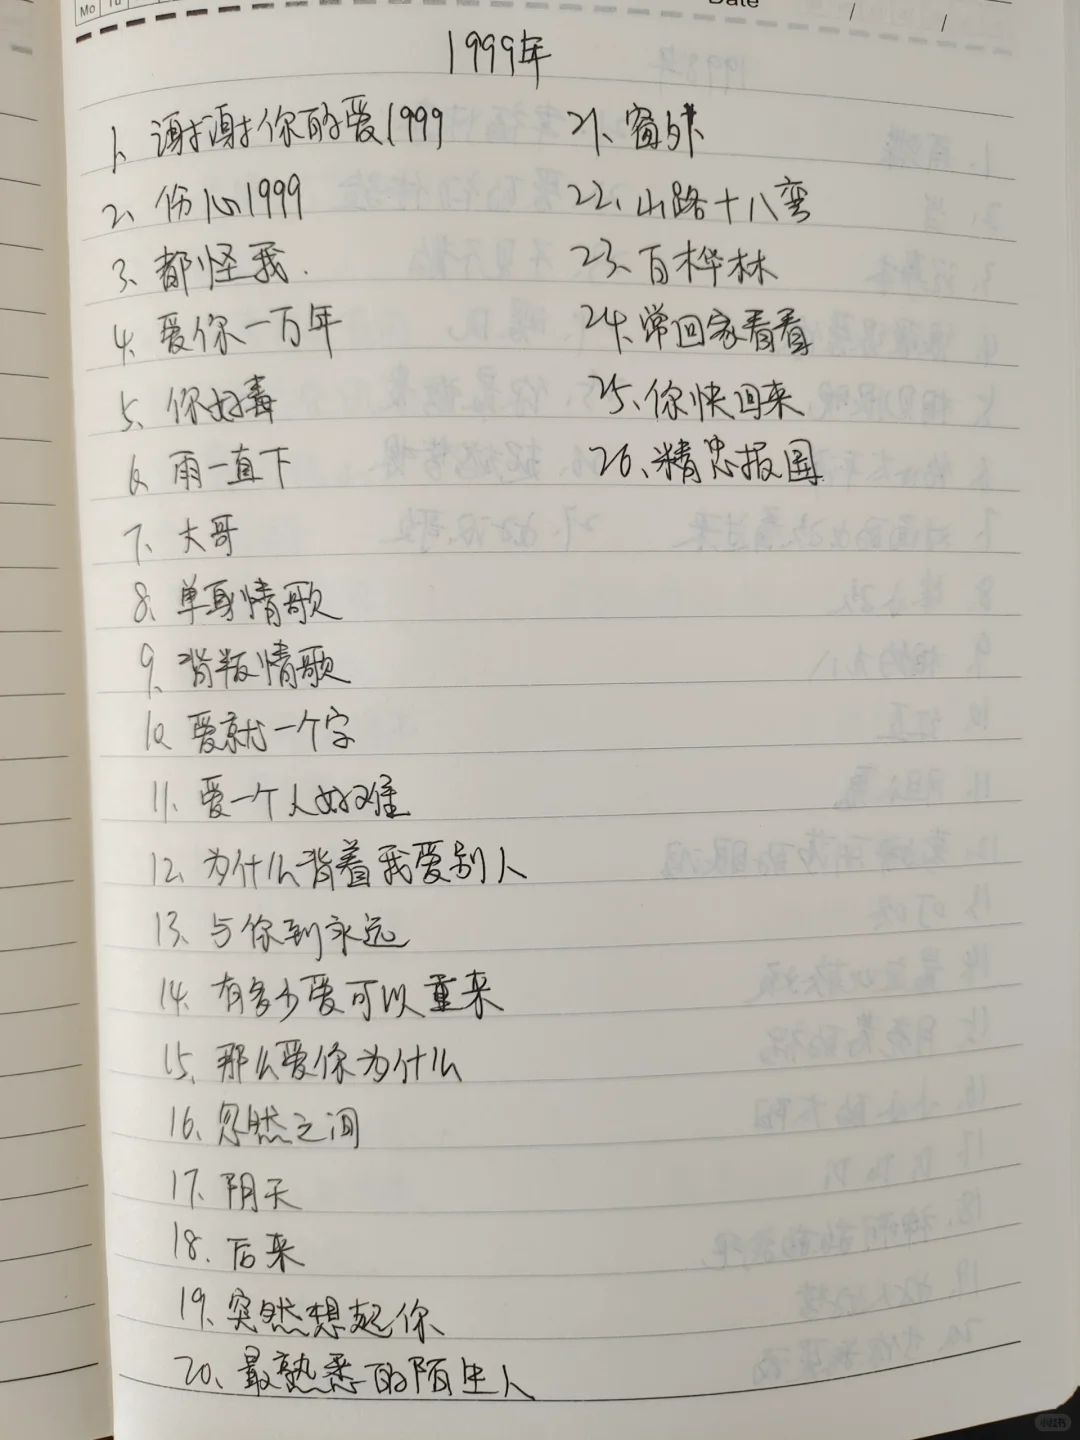 Mo Tu
Date / /
1999年
1、谢谢你的爱1999
2、伤心1999
3、都怪我.
4、爱你一万年
5、你好毒
6、雨一直下
7、大哥
8、单身情歌
9、背叛情歌
10、爱就一个字
11、爱一个人好难
12、为什么背着我爱别人
13、与你到永远
14、有多少爱可以重来
15、那么爱你为什么
16、忽然之间
17、阴天
18、后来
19、突然想起你
20、最熟悉的陌生人
21、窗外
22、山路十八弯
23、百桦林
24、常回家看看
25、你快回来
26、精忠报国
小红书